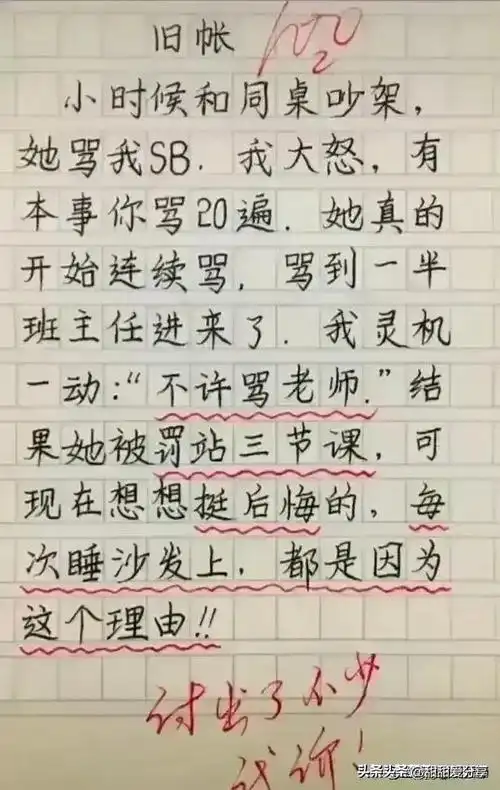 旧帐
100
小时候和同桌吵架,
她骂我SB. 我大怒,有
本事你骂20遍. 她真的
开始连续骂, 骂到一半
班主任进来了. 我灵机
一动:“不许骂老师.”结
果她被罚站三节课,可
现在想想挺后悔的,每
次睡沙发上, 都是因为
这个理由!!
付出了不少
代价!
头条头条@甜甜爱分享